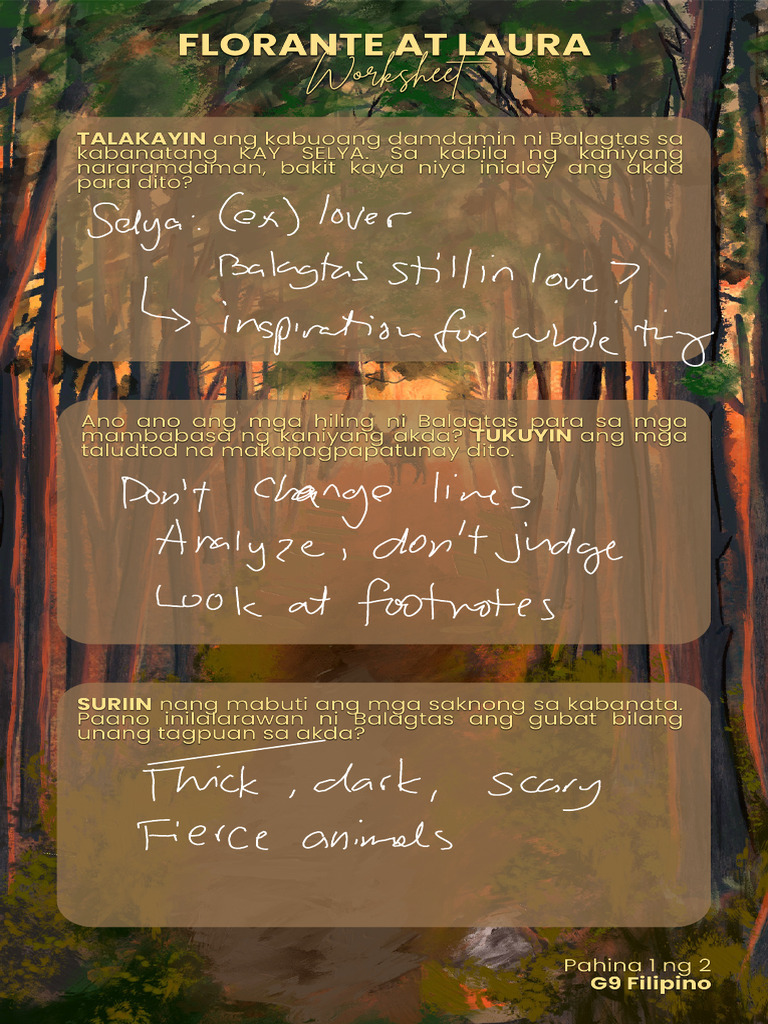 FLORANTE AT LAURA
Worksheet
TALAKAYIN ang kabuoang damdamin ni Balagtas sa
kabanatang KAY SELYA. Sa kabila ng kaniyang
nararamdaman, bakit kaya niya inialay ang akda
para dito?
Selya: (ex) lover
Balagtas still in love?
↳ inspiration for whole ting
Ano ano ang mga hiling ni Balagtas para sa mga
mambabasa ng kaniyang akda? TUKUYIN ang mga
taludtod na makapagpapatunay dito.
Don't change lines
Analyze, don't judge
Look at footnotes
SURIIN nang mabuti ang mga saknong sa kabanata.
Paano inilalarawan ni Balagtas ang gubat bilang
unang tagpuan sa akda?
Thick, dark, scary
Fierce animals
Pahina 1 ng 2
G9 Filipino